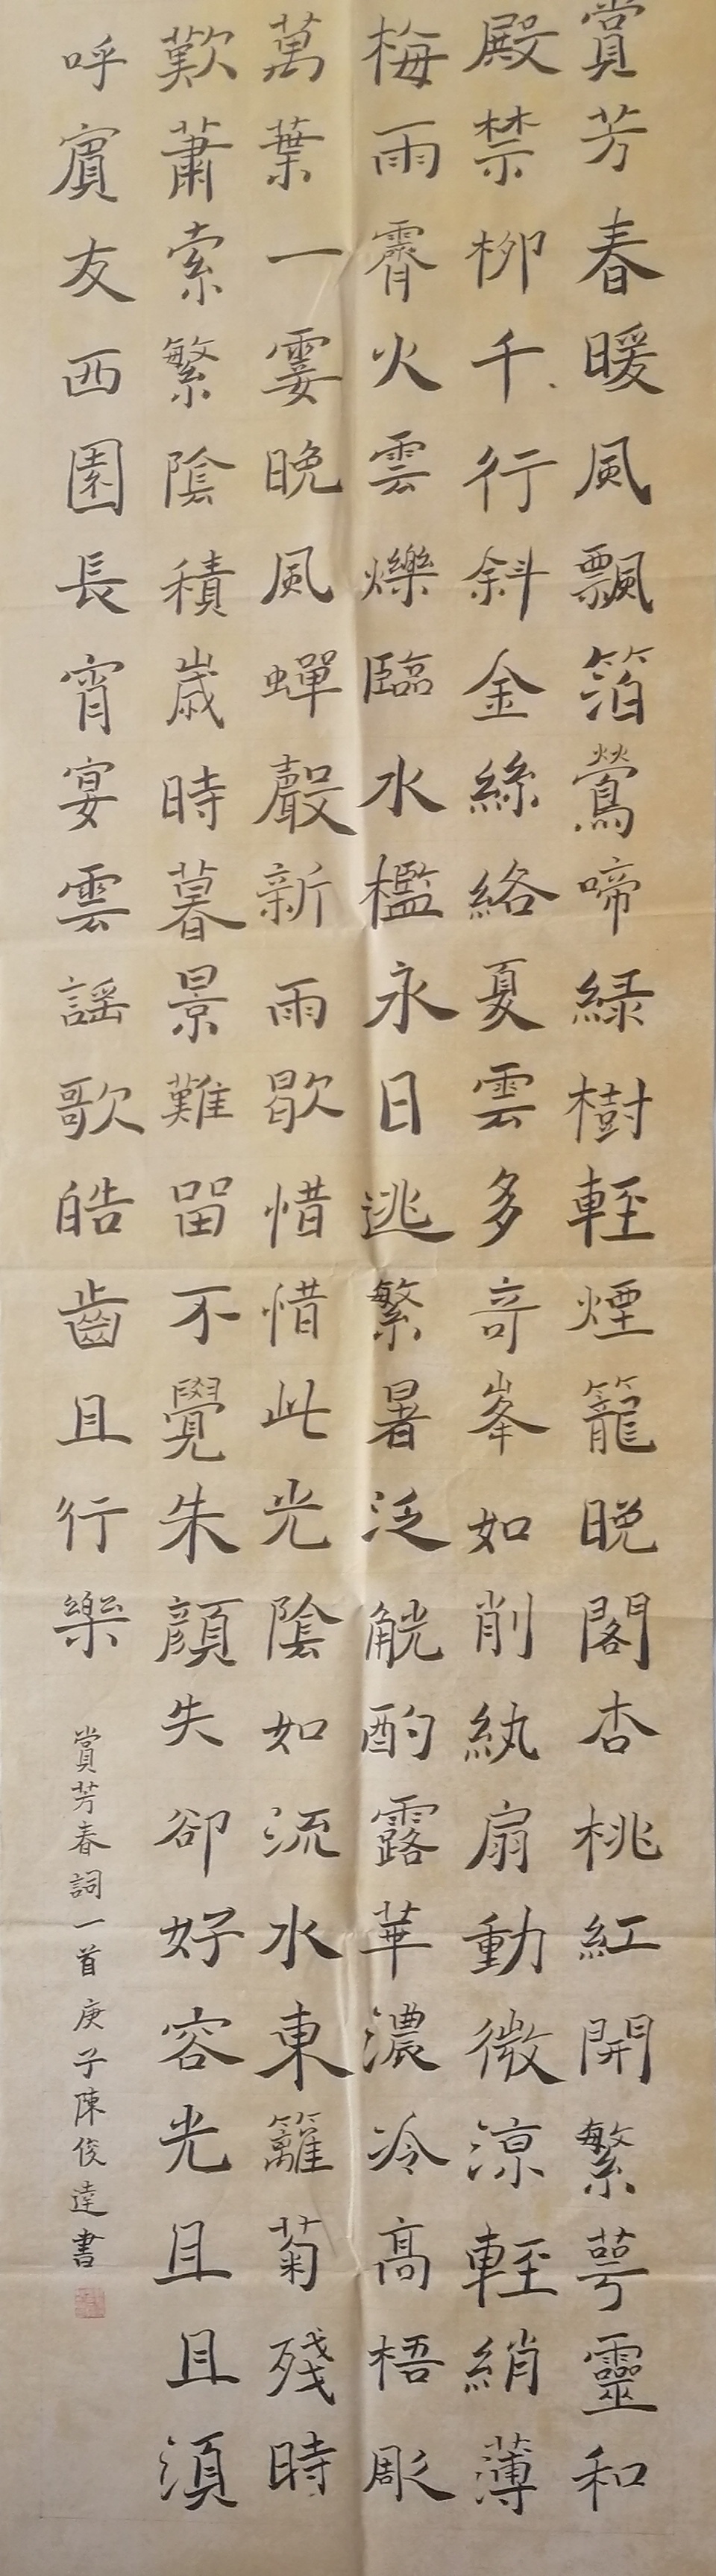 賞芳春暖風飄箔鶯啼綠樹輕煙籠晚閣杏桃紅開繁萼靈和
殿禁柳千行斜金絲絡夏雲多奇峯如削紈扇動微涼輕綃薄
梅雨霽火雲爍臨水檻永日逃繁暑泛觥酌露華濃冷高梧彫
萬葉一霎晚風蟬聲新雨歇惜惜此光陰如流水東籬菊殘時
歎蕭索繁陰積歲時暮景難留不覺朱顏失卻好容光且且須
呼賓友西園長宵宴雲謠歌皓齒且行樂
賞芳春詞一首庚子陳俊逵書